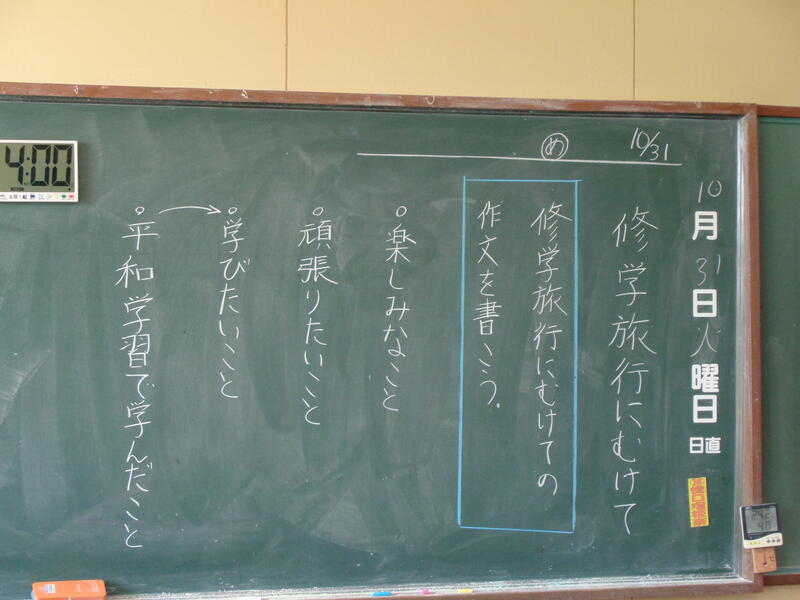 10月31日火曜日
日直
10/31
修学旅行にむけて
め
修学旅行にむけての
作文を書こう.
楽しみなこと
頑張りたいこと
学びたいこと
平和学習で学んだこと
4:00